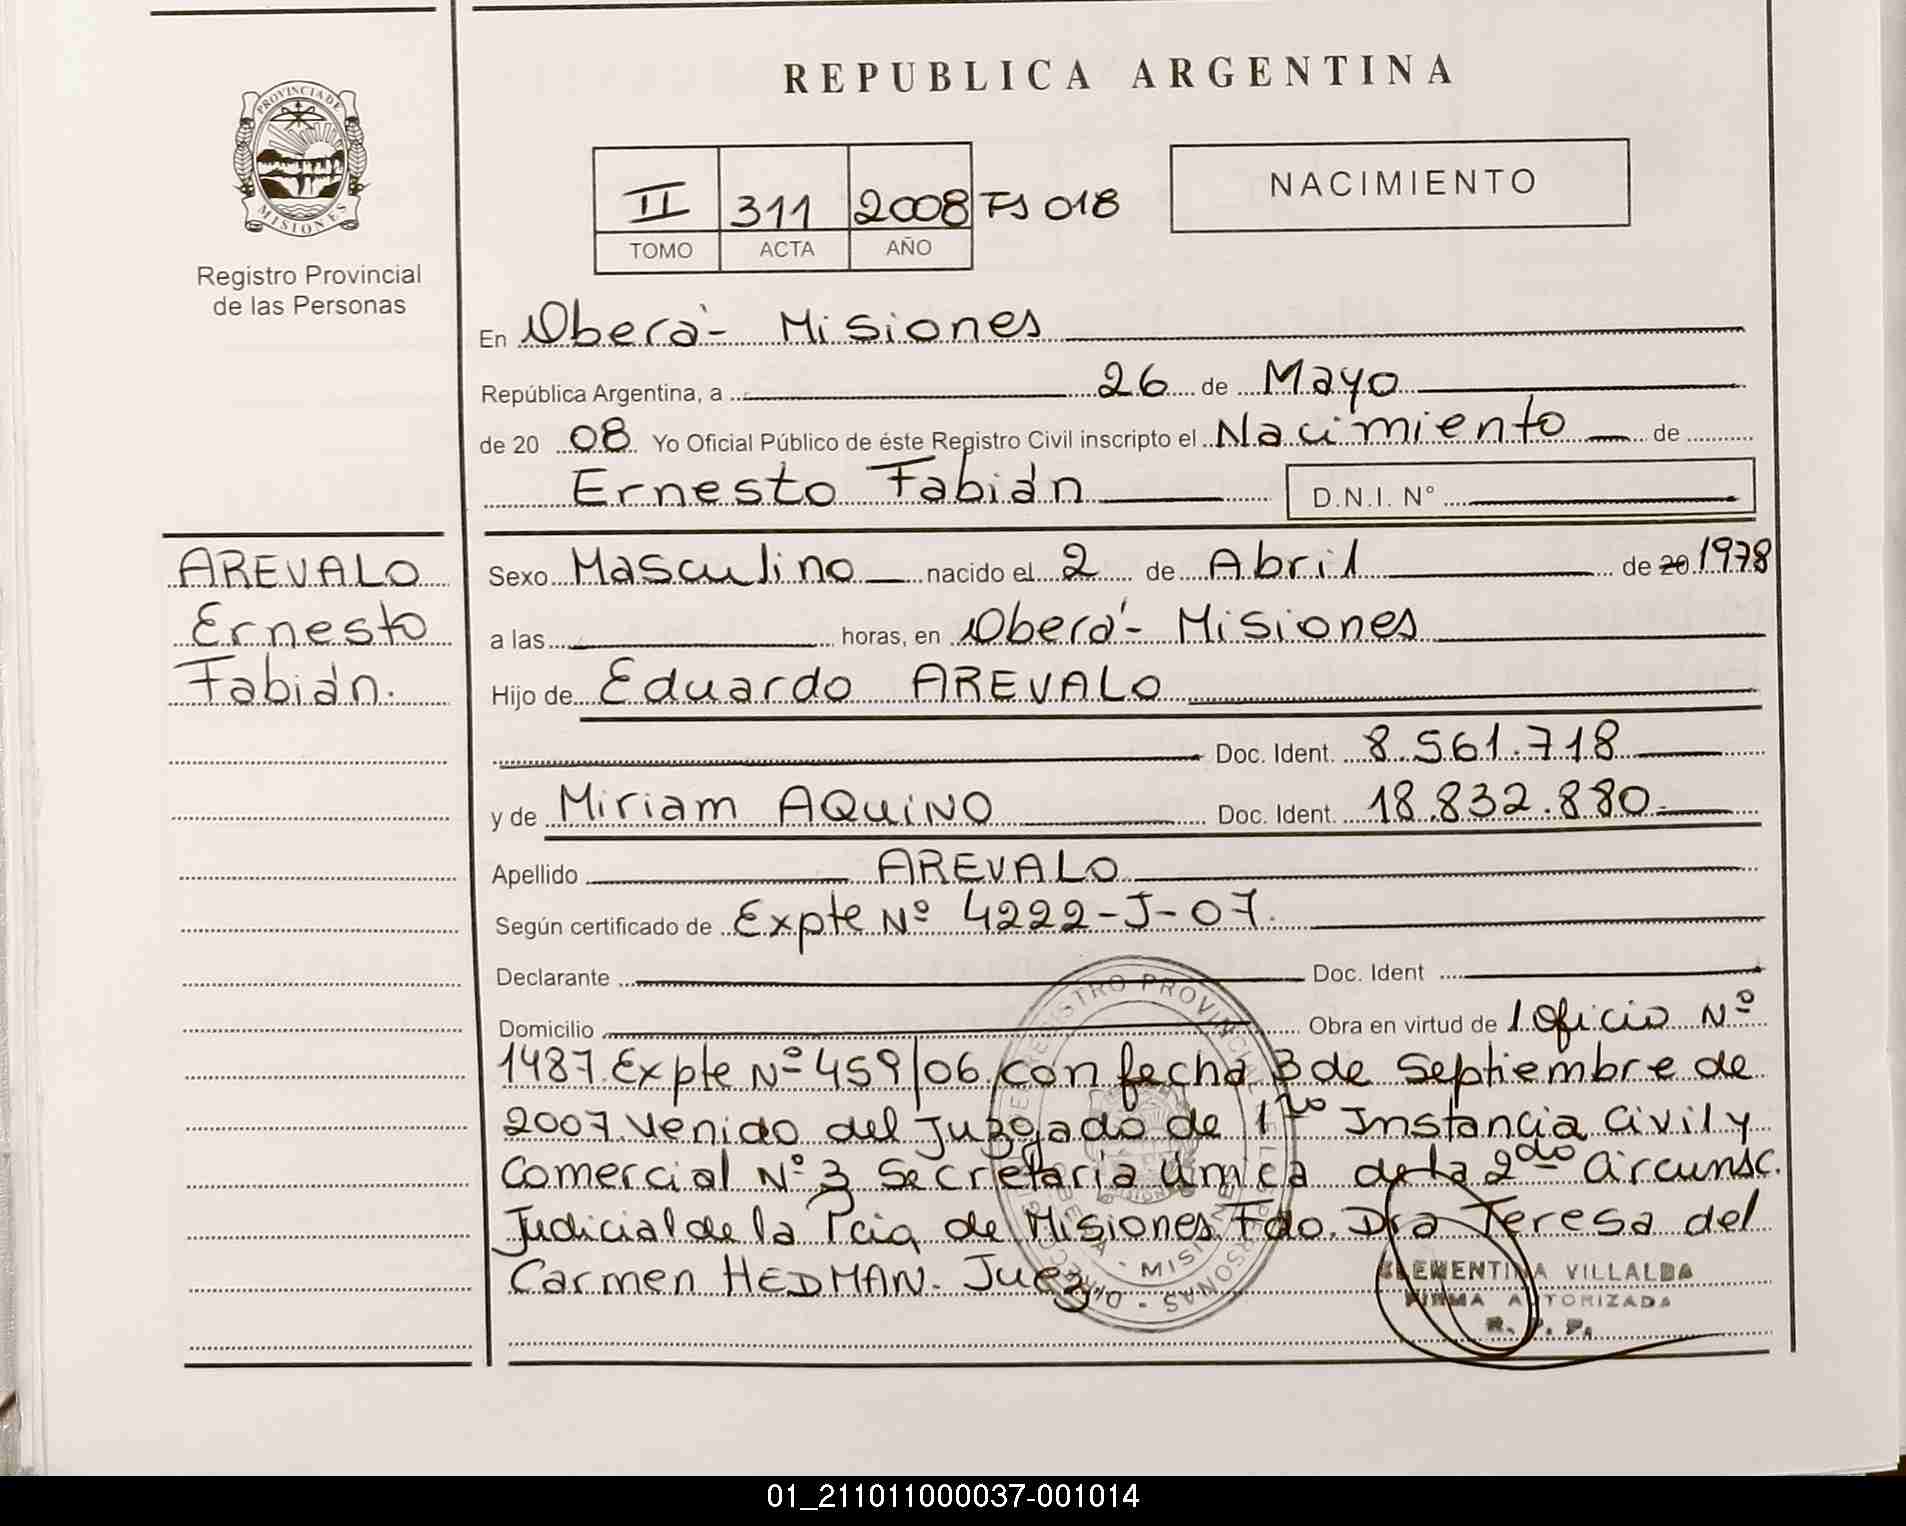 REPUBLICA ARGENTINA
PROVINCIA DE
MISIONES
Registro Provincial
de las Personas
II 311 2008 Fs 018
TOMO ACTA AÑO
NACIMIENTO
En Oberá - Misiones
República Argentina, a 26 de Mayo
de 20 08 Yo Oficial Público de éste Registro Civil inscripto el Nacimiento de
Ernesto Fabián D.N.I. N°
AREVALO
Ernesto
Fabián.
Sexo Masculino nacido el 2 de Abril de 20 1978
a las horas, en Oberá - Misiones
Hijo de Eduardo AREVALO
Doc. Ident. 8.561.718
y de Miriam AQUINO Doc. Ident. 18.832.880
Apellido AREVALO
Según certificado de Expte Nº 4222-J-07.
Declarante Doc. Ident
Domicilio Obra en virtud de 1 Oficio Nº
1487. Expte Nº 459/06 con fecha 3 de Septiembre de
2007. Venido del Juzgado de 1ra Instancia Civil y
Comercial Nº 3 Secretaria única de la 2do Circunsc.
Judicial de la Pcia de Misiones Fdo. Dra Teresa del
Carmen HEDMAN - Juez"
CLEMENTINA VILLALBA
FIRMA AUTORIZADA
R. P. P.
01_211011000037-001014